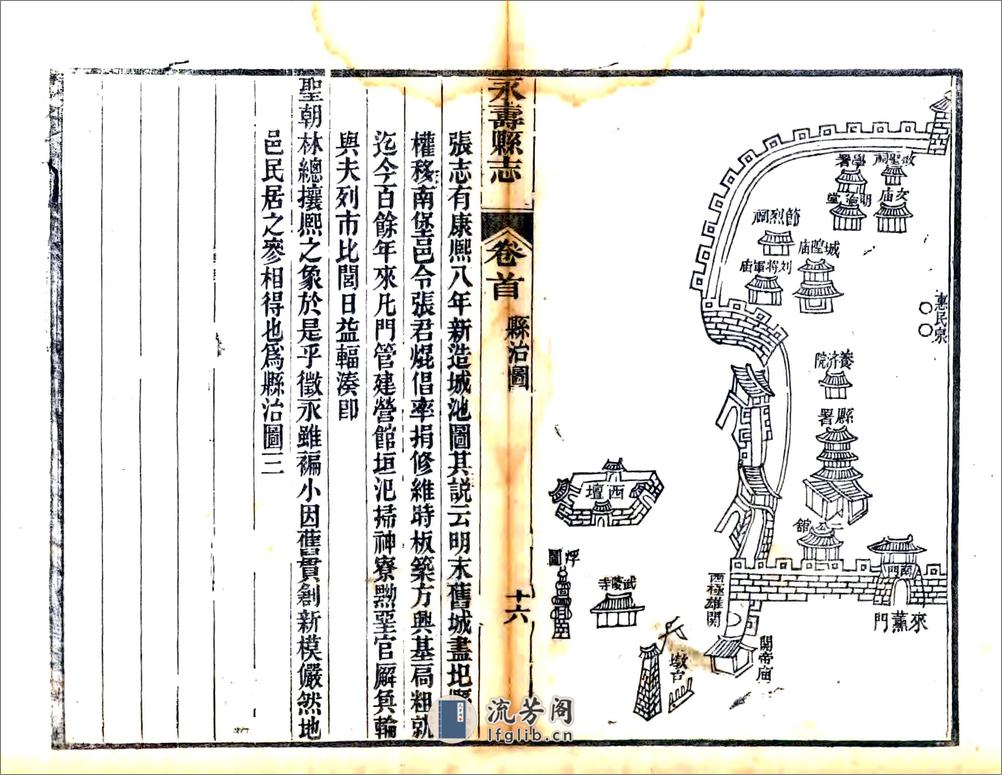 啟聖祠
學署
文廟
明倫堂
節烈祠
城隍廟
刘將軍廟
惠民泉
養濟院
縣署
二公館
南門
來薰門
西壇
浮圖
武陵寺
西極雄關
關帝廟
墩古
永壽縣志
卷首
縣治圖
十六
張志有康熙八年新造城池圖其説云明末舊城盡圯縣
權移南堡邑令張君焜倡率捐修維時板築方興基局粗就
迄今百餘年來凡門管建營館垣汜掃神寮黝堊官廨眞輪
與夫列市比閭日益輻湊即
聖朝林總攘熙之象於是乎徵永雖褊小因舊貫創新模儼然地
邑民居之參相得也爲縣治圖三
流芳阁
lfglib.cn